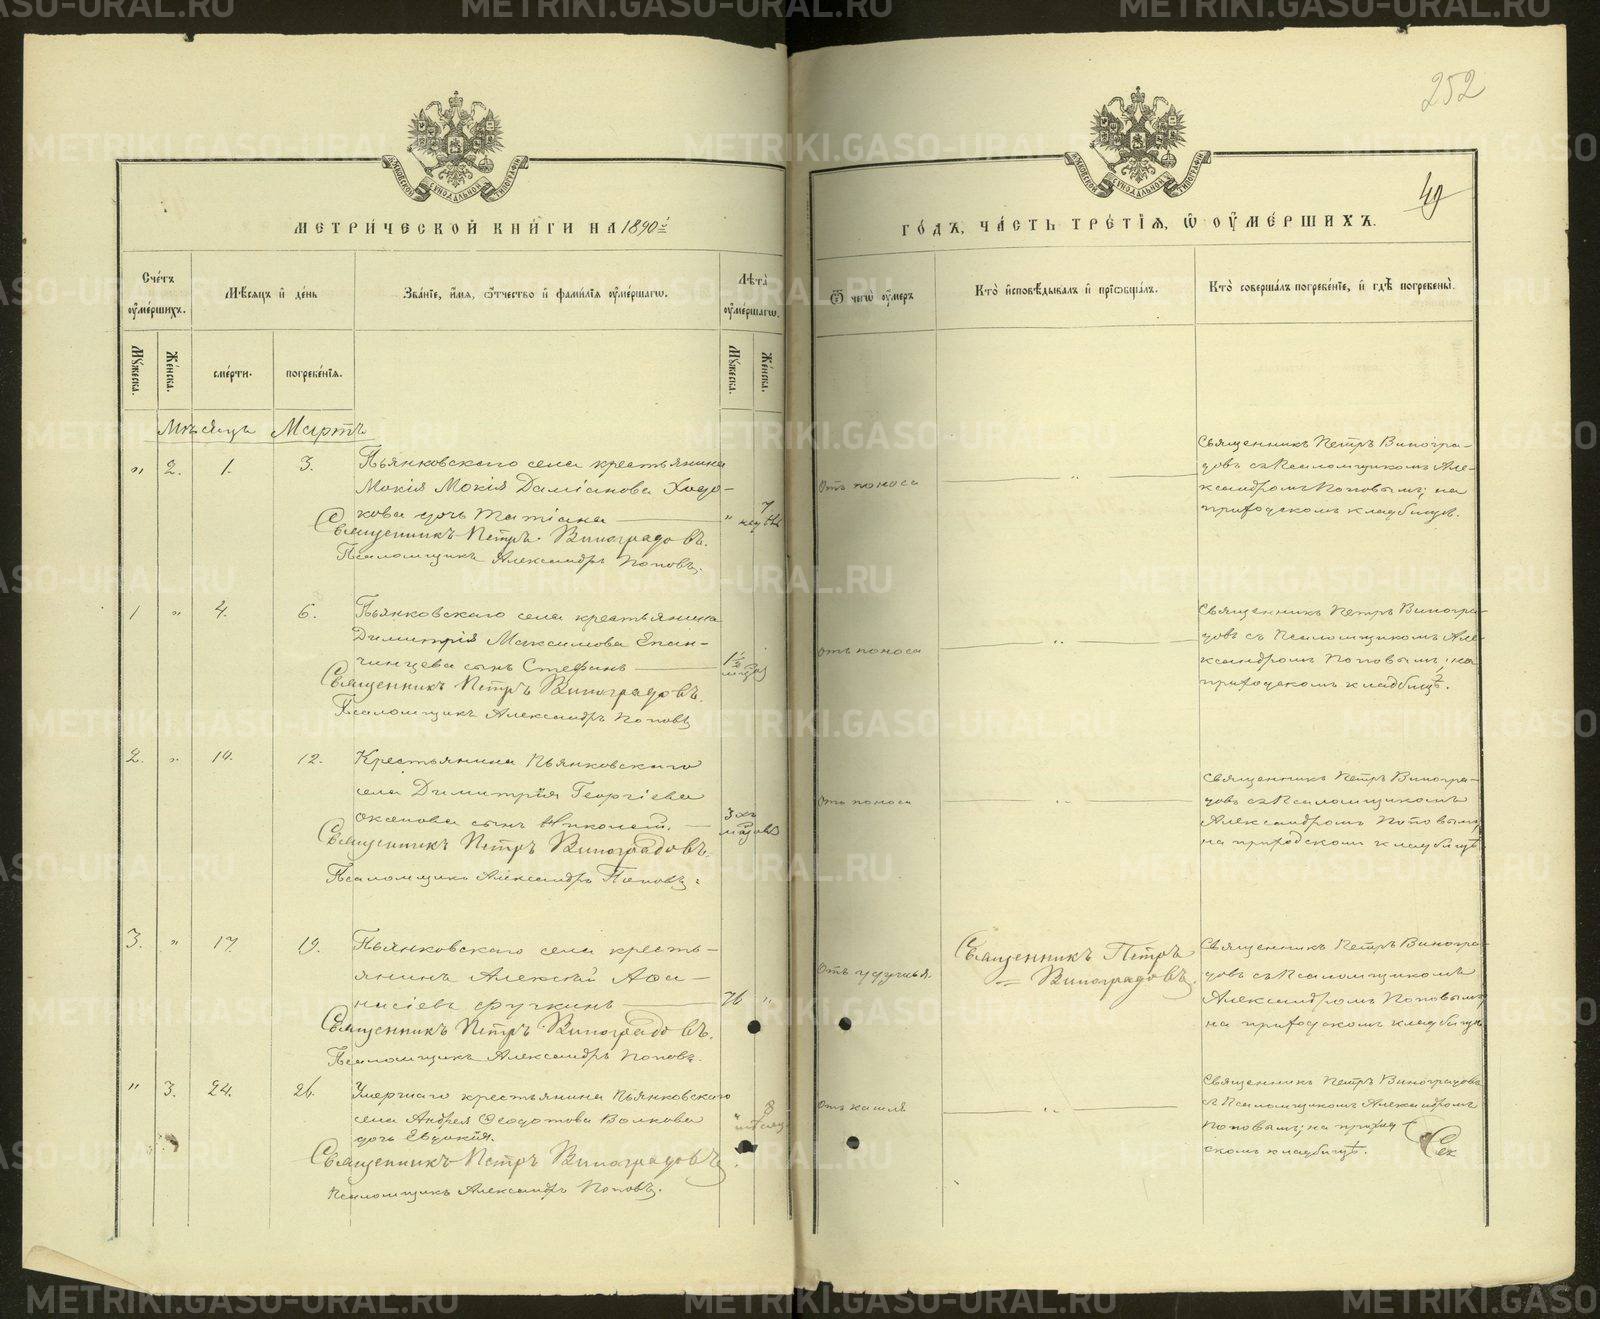 252
49
МЕТРИ́ЧЕСКОЙ КНИ́ГИ НА 1890 г.
ГО́ДЪ, ЧА́СТЬ ТРЕ́ТІЯ, Ѿ ОУМЕ́РШИХЪ.
Сче́тъ оуме́ршихъ.
Мѣ́сяцъ и де́нь
Зва́нїе, и́мя, ѻ́тчество и фами́лїя оуме́ршагѡ.
Лѣта̀ оуме́ршагѡ.
Ѿ чегѡ̀ оу́меръ
Кто̀ и҆сповѣ́дывалъ и҆ прїѡбща́лъ.
Кто̀ соверша́лъ погребе́нїе, и҆ гдѣ̀ погребены̀.
Мꙋ́жеска.
Же́нска.
сме́рти.
погребе́нїя.
Мꙋ́жеска.
Же́нска.
Мѣсяцъ Мартъ
" 2. 1. 3. Пьянковскаго села крестьянина
Мокія Мокія Даміанова
кова дочь Татіана " 7 нед
Священникъ Петръ Виноградовъ.
Псаломщикъ Александръ Поповъ.
Отъ поноса
Священникъ Петръ Виногра-
довъ съ Псаломщикомъ Але-
ксандромъ Поповымъ; на
приходскомъ кладбищѣ.
1 " 4. 6. Пьянковскаго села крестьянина
Димитрія Максимова Епан-
чинцева сынъ Стефанъ 1½
Священникъ Петръ Виноградовъ.
Псаломщикъ Александръ Поповъ
Отъ поноса
Священникъ Петръ Виногра-
довъ съ Псаломщикомъ Але-
ксандромъ Поповымъ; на
приходскомъ кладбищѣ.
2. " 10. 12. Крестьянина Пьянковскаго
села Димитрія Георгіева
сынъ Николай. 3хъ
Священникъ Петръ Виноградовъ.
Псаломщикъ Александръ Поповъ.
Отъ поноса
Священникъ Петръ Виногра-
довъ съ Псаломщикомъ
Александромъ Поповымъ,
на приходскомъ кладбищѣ
3. " 17. 19. Пьянковскаго села кресть-
янинъ Алексѣй Афа-
насіевъ Фучкинъ 76 "
Священникъ Петръ Виноградовъ.
Псаломщикъ Александръ Поповъ.
Отъ удушья.
Священникъ Петръ
Виноградовъ.
Священникъ Петръ Виногра-
довъ съ Псаломщикомъ
Александромъ Поповымъ,
на приходскомъ кладбищѣ
" 3. 24. 26. Умершаго крестьянина Пьянковскаго
села Андрея Ѳеодотова Волкова
дочь Евдокія. " 8
Священникъ Петръ Виноградовъ
Псаломщикъ Александръ Поповъ.
Отъ кашля
Священникъ Петръ Виноградовъ
съ Псаломщикомъ Александромъ
Поповымъ; на приход-
скомъ кладбищѣ.
Сек
METRIKI.GASO-URAL.RU